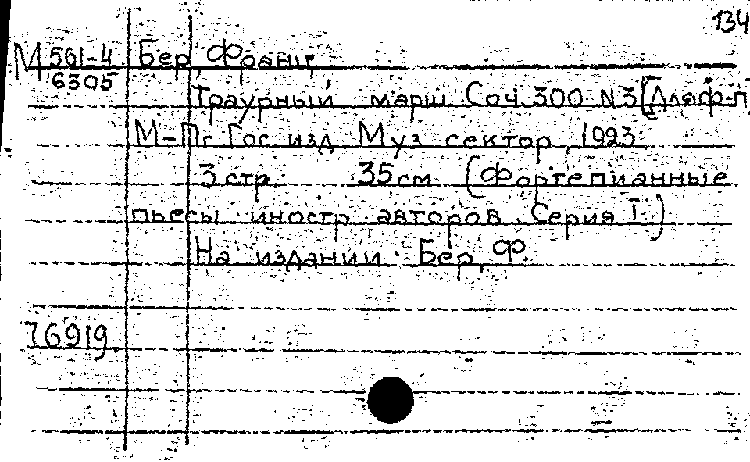 134
М 561-4 Бер, Франц
6305
Траурный марш Соч 300 N3 [Для ф-п
М-Пг Гос изд Муз сектор, 1923
3 стр. 35 см (Фортепианные
пьесы иностр авторов. Серия I.)
На издании: Бер, Ф.
76919